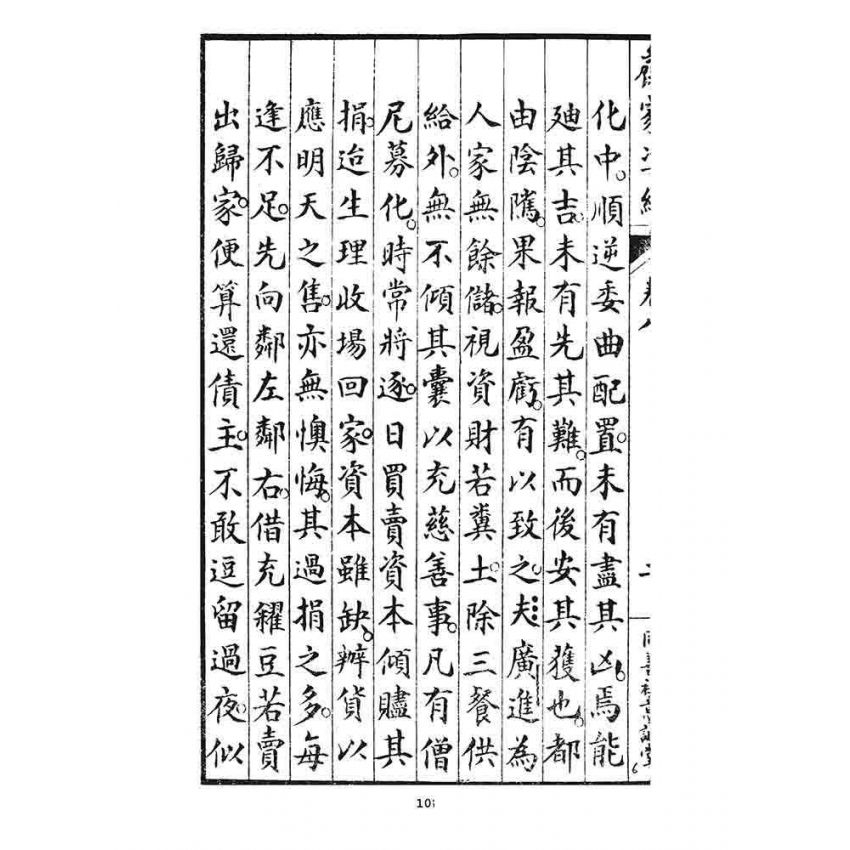 化中。順逆委曲配置。未有盡其凶。焉能
廸其吉。未有先其難。而後安其獲也。都
由陰隲。果報盈虧。有以致之。夫廣進為
人家無餘儲。視資財若糞土。除三餐供
給外。無不傾其囊以充慈善事。凡有僧
尼募化。時常將逐。日買賣資本傾贐其
捐。迨生理收場回家。資本雖缺。辦貨以
應明天之售。亦無懊悔。其過捐之多。每
逢不足。先向鄰左鄰右。借充糴豆若賣
出歸家。便算還債主。不敢逗留過夜。似